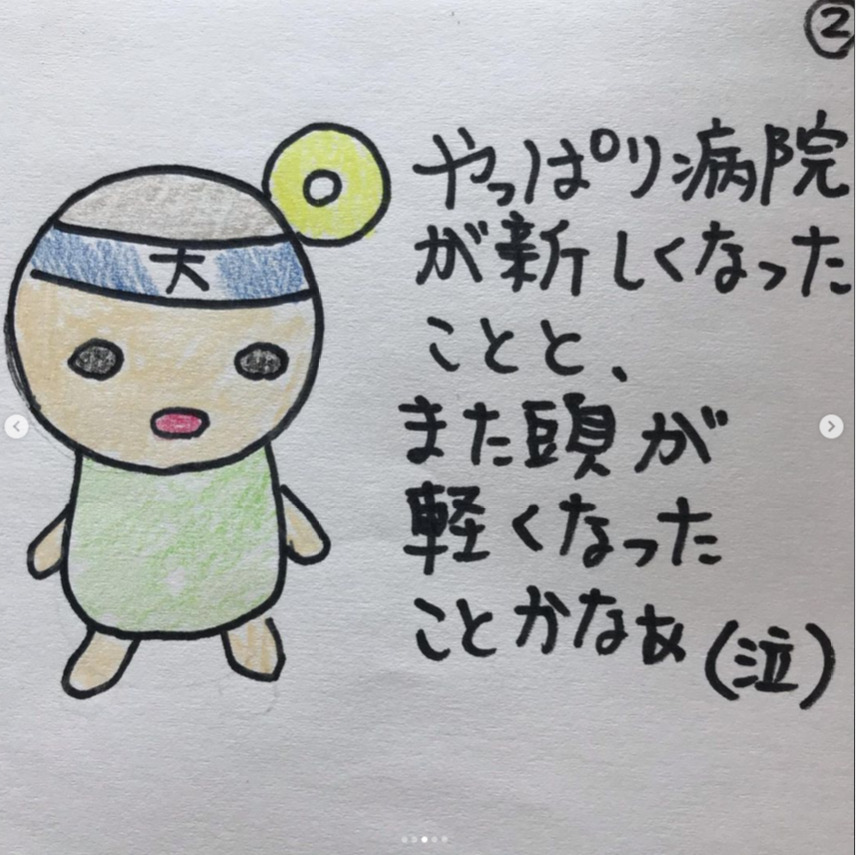 ②
やっぱり病院
が新しくなった
ことと、
また頭が
軽くなった
ことかなぁ(泣)
大